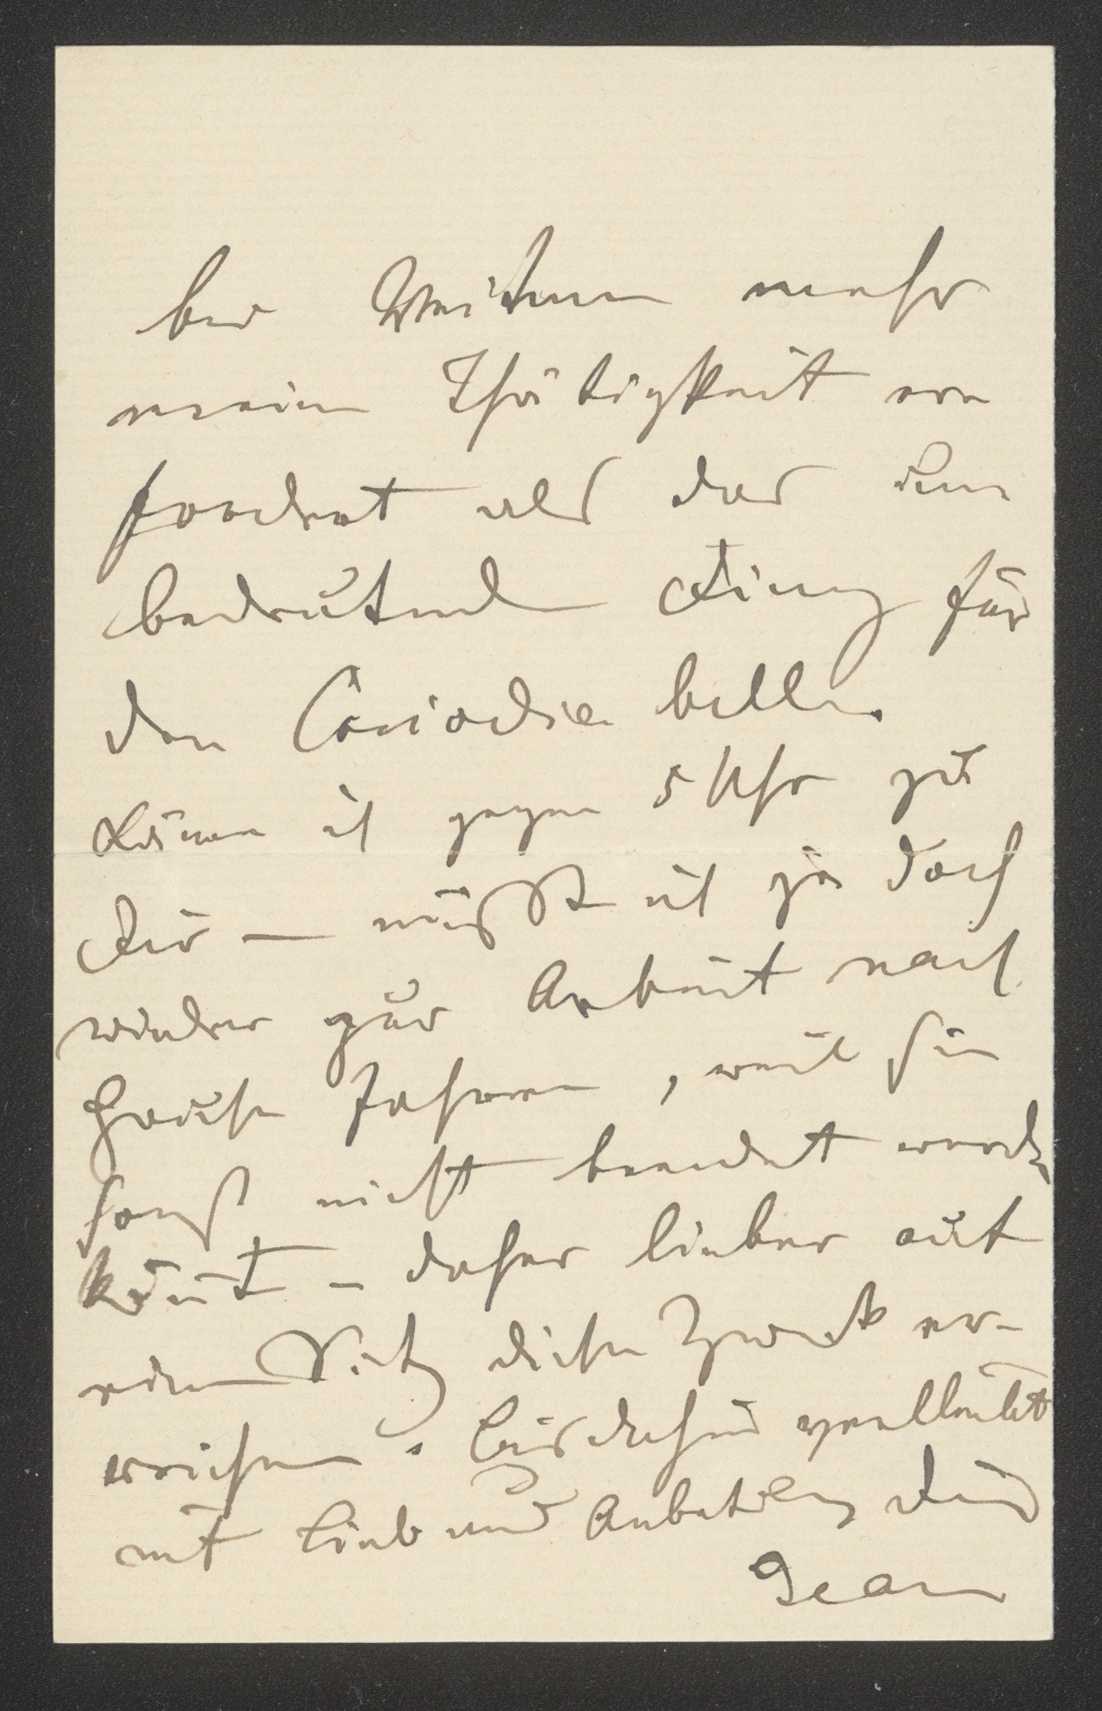 bei Weitem mehr
meine Thätigkeit er
fordert als das un
bedeutende Ding für
den
Käme ich gegen 5 Uhr zu
Dir — müßte ich ja doch
wieder zur Arbeit nach
Hause fahren, weil sie
sonst nicht beendet werden
könnte – daher lieber auf
einen Sitz diesen Zweck er-
reichen. Bis dahin
mit Lieb und Anbetung Dein
Jean